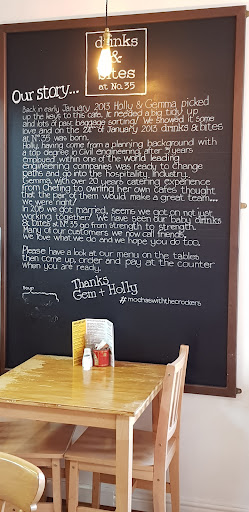 drinks
&
bites
at No.35
Our story...
Back in early January 2013 Holly & Gemma picked
up the keys to this cafe. It needed a big tidy up
and lots of past baggage sorting! We showed it some
love and on the 28th of January 2013 drinks & bites
at No.35 was born.
Holly, having come from a planning background with
a top degree in Civil engineering, after 5 years
employed within one of the world leading
Engineering companies was ready to change
paths and go into the hospitality industry.
Gemma, with over 20 years catering experience
from Chefing to owning her own cafes thought
that the pair of them would make a great team...
We were right!
In 2015 we got married, seems we got on not just
working together! We have seen our baby drinks
& bites at No.35 go from strength to strength.
Many of our customers we now call friends,
we love what we do and we hope you do too.
Please have a look at our menu on the tables
then come up, order and pay at the counter
when you are ready.
Thanks
Gem + Holly
#mochaswiththecrockers